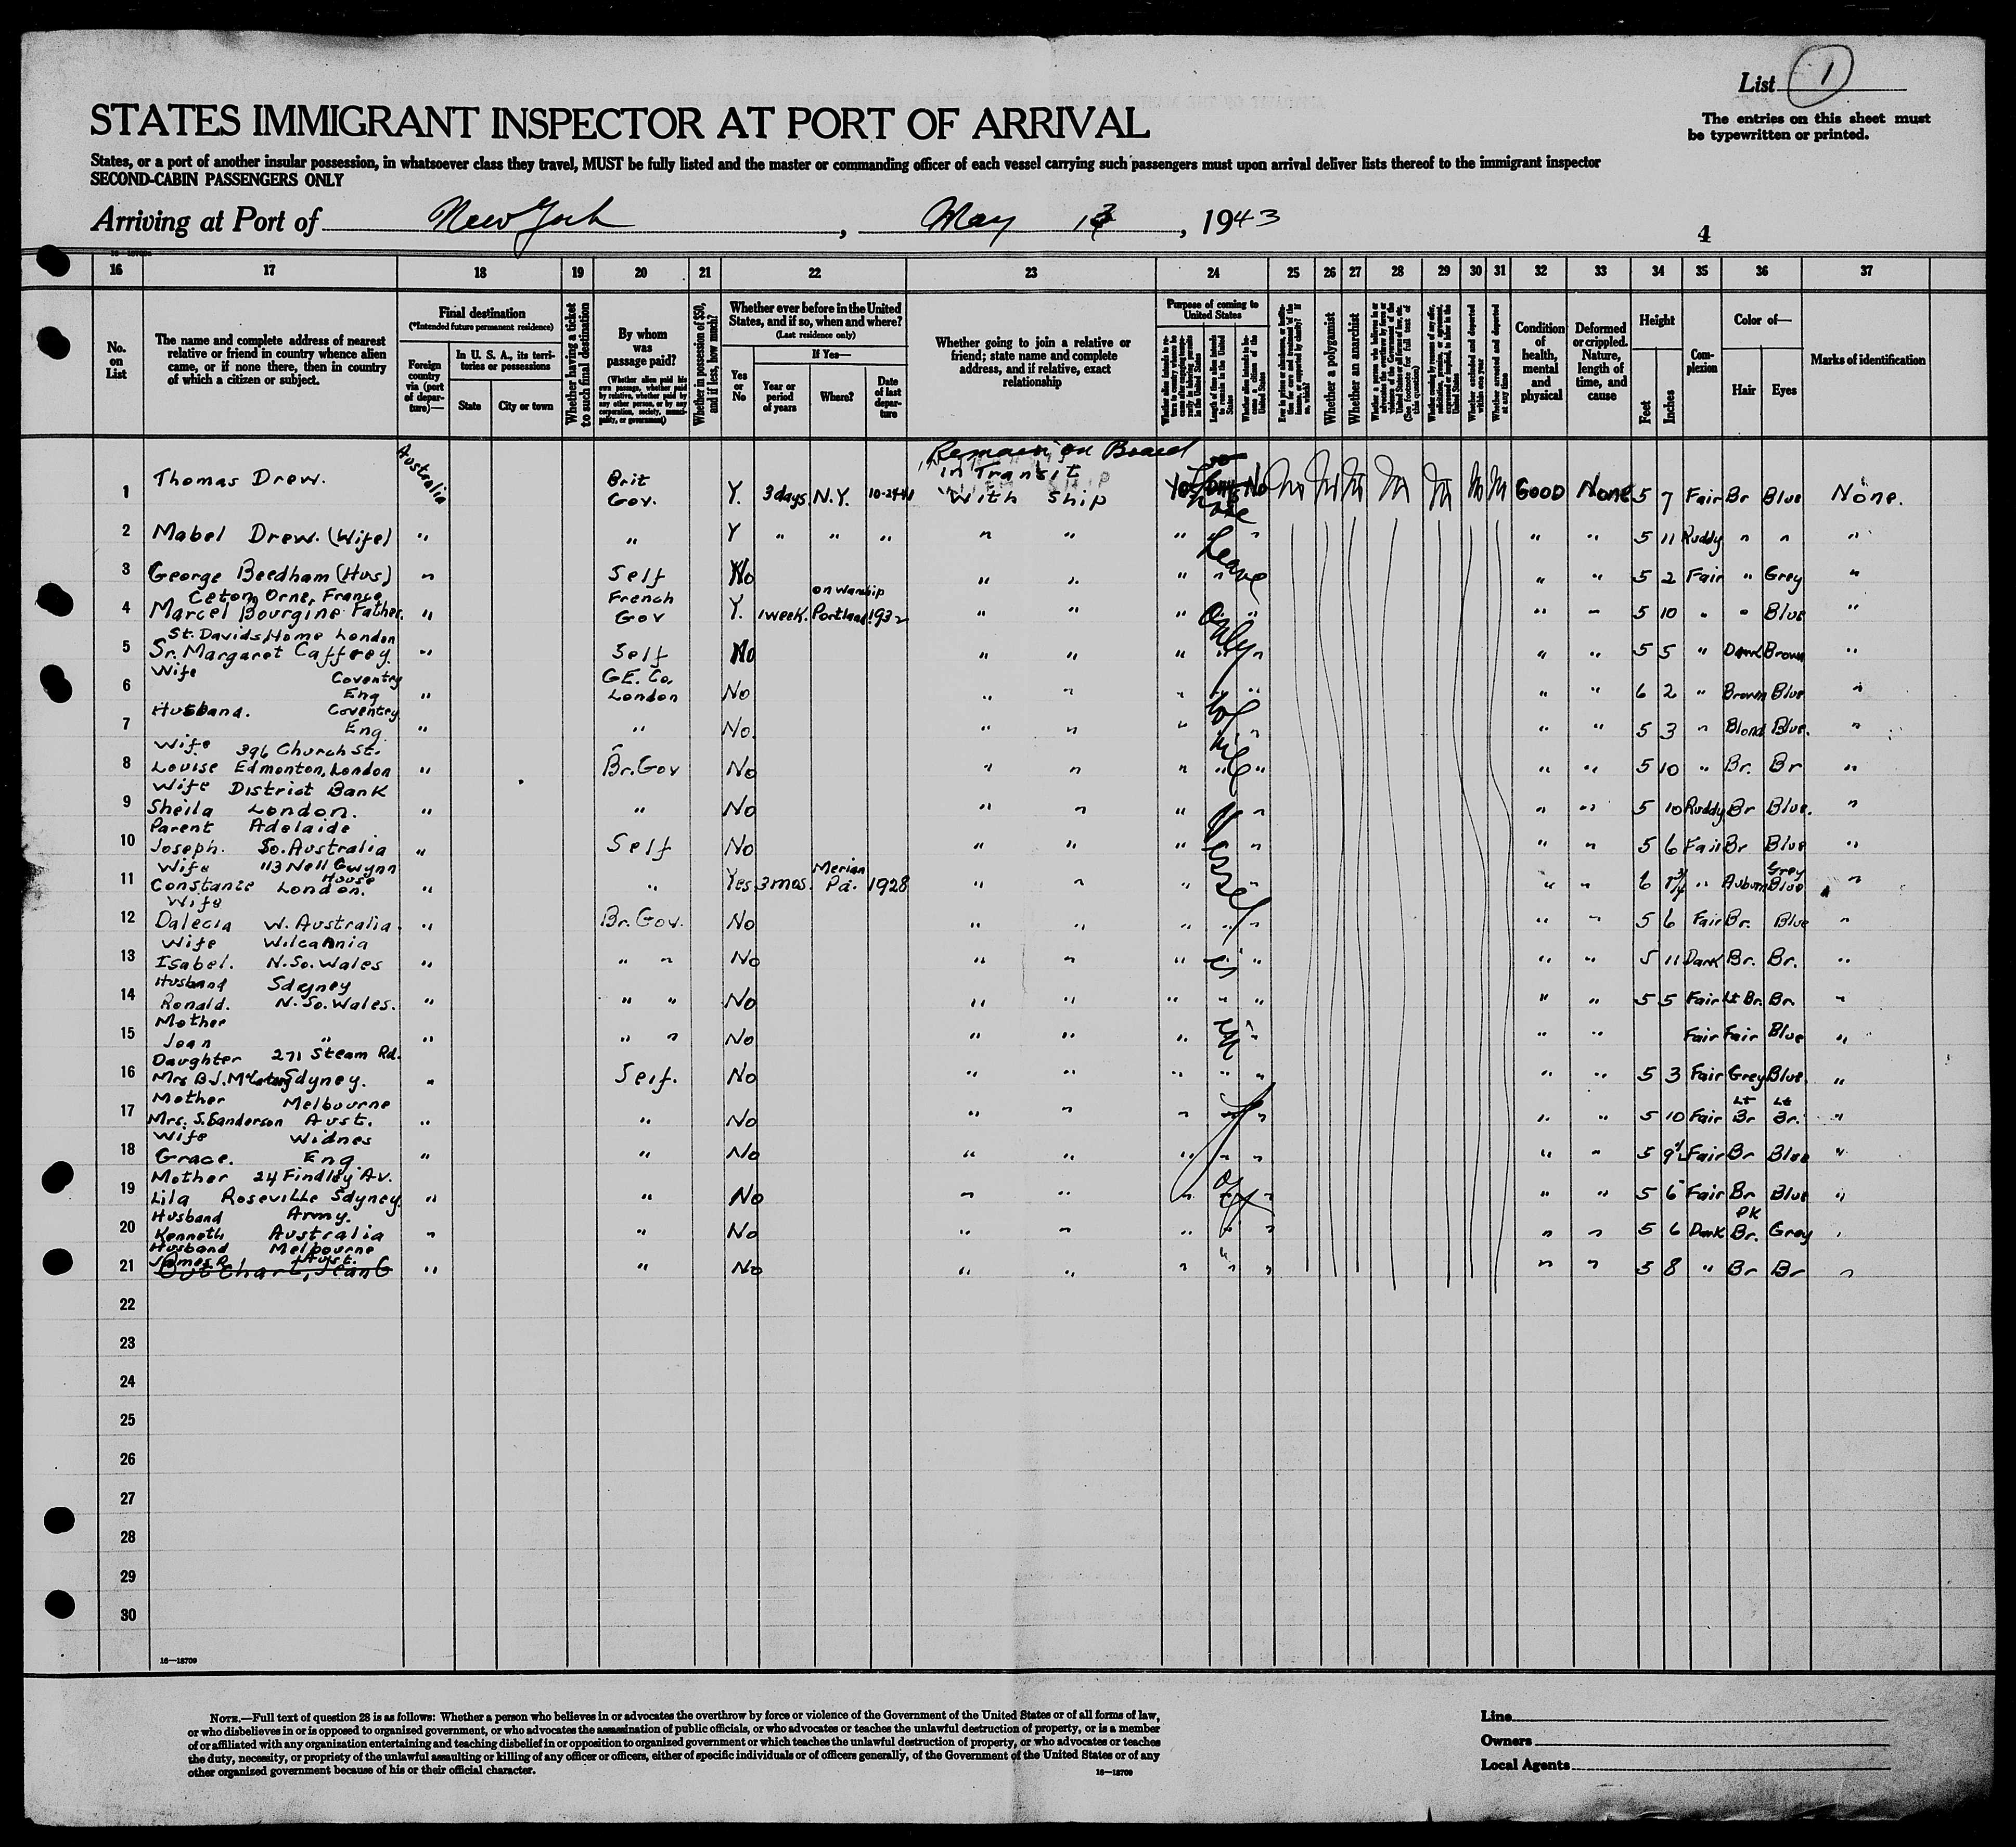 List 1
The entries on this sheet must
be typewritten or printed.
STATES IMMIGRANT INSPECTOR AT PORT OF ARRIVAL
States, or a port of another insular possession, in whatsoever class they travel, MUST be fully listed and the master or commanding officer of each vessel carrying such passengers must upon arrival deliver lists thereof to the immigrant inspector
SECOND-CABIN PASSENGERS ONLY
Arriving at Port of New York, May 13, 1943
4
16 17 18 19 20 21 22 23 24 25 26 27 28 29 30 31 32 33 34 35 36 37
No. on List
The name and complete address of nearest
relative or friend in country whence alien
came, or if none there, then in country
of which a citizen or subject.
Final destination
(*Intended future permanent residence)
Foreign
country
via (port
of depar-
ture)—
In U. S. A., its terri-
tories or possessions
State
City or town
Whether having a ticket
to such final destination
By whom
was
passage paid?
(Whether alien paid his
own passage, whether paid
by relative, whether paid by
any other person, or by any
corporation, society, munici-
pality, or government)
Whether in possession of $50,
and if less, how much?
Whether ever before in the United
States, and if so, when and where?
(Last residence only)
Yes
or
No
If Yes—
Year or
period
of years
Where?
Date
of last
depar-
ture
Whether going to join a relative or
friend; state name and complete
address, and if relative, exact
relationship
Purpose of coming to
United States
Whether a polygamist
Whether an anarchist
Condition
of
health,
mental
and
physical
Deformed
or crippled.
Nature,
length of
time, and
cause
Height
Feet
Inches
Com-
plexion
Color of—
Hair
Eyes
Marks of identification
Remain on Board
1 Thomas Drew. Australia Brit Gov. Y. 3 days. N.Y. In Transit With Ship No GOOD None 5 7 Fair Br Blue None.
2 Mabel Drew. (Wife) " " Y " " " " " " " " " 5 11 Ruddy " " "
3 George Beedham (Hus) " Self No " " " " " " 5 2 Fair " Grey "
Ceton, Orne, France
4 Marcel Bourgine Father. " French Gov Y. 1 week. on warship Portland 1932 " " " " " " 5 10 " " Blue "
St. Davids Home London
5 Sr. Margaret Caffrey. " Self No " " " " " " 5 5 " Dark Brown "
Wife Coventry
6 Eng " G.E. Co. London No " " " " " " 6 2 " Brown Blue "
Husband. Coventry
7 Eng " " No. " " " " " " 5 3 " Blond Blue. "
Wife 396 Church St.
8 Louise Edmonton, London " Br. Gov No " " " " " " 5 10 " Br. Br "
Wife District Bank
9 Sheila London. " " No " " " " " " 5 10 Ruddy Br Blue. "
Parent Adelaide
10 Joseph. So. Australia " Self No " " " " " " 5 6 Fair Br Blue "
Wife 113 Nell Gwynn House
11 Constance London. " " Yes 3 mos. Merian Pa. 1928 " " " " " " 6 " Auburn Grey Blue "
Wife
12 Dalecia W. Australia. " Br. Gov. No " " " " " " 5 6 Fair Br. Blue "
Wife Wilcannia
13 Isabel. N. So. Wales " " " No " " " " " " 5 11 Dark Br. Br. "
Husband Sdyney
14 Ronald. N. So. Wales. " " " No " " " " " " 5 5 Fair Lt Br. Br. "
Mother
15 Joan " " " " No " " " " " " Fair Fair Blue "
Daughter 271 Steam Rd.
16 Mrs B.J. Sdyney. " Self. No " " " " " " 5 3 Fair Grey Blue. "
Mother Melbourne
17 Mrs. S. Sanderson Aust. " " No " " " " " " 5 10 Fair Lt Br Lt Br. "
Wife Widnes
18 Grace. Eng " " No " " " " " " 5 9½ Fair Br Blue "
Mother 24 Findlay Av.
19 Lila Roseville Sdyney. " " No " " " " " " 5 6 Fair Br Blue "
Husband Army.
20 Kenneth Australia " " No " " " " " " 5 6 Dark DK Br. Grey "
Husband Melbourne
21 James R. Aust. " " No " " " " " " 5 8 " Br Br "
None Leave Only while Vessel is in
22
23
24
25
26
27
28
29
30
16—18709
NOTE.—Full text of question 28 is as follows: Whether a person who believes in or advocates the overthrow by force or violence of the Government of the United States or of all forms of law,
or who disbelieves in or is opposed to organized government, or who advocates the assassination of public officials, or who advocates or teaches the unlawful destruction of property, or is a member
of or affiliated with any organization entertaining and teaching disbelief in or opposition to organized government or which teaches the unlawful destruction of property, or who advocates or teaches
the duty, necessity, or propriety of the unlawful assaulting or killing of any officer or officers, either of specific individuals or of officers generally, of the Government of the United States or of any
other organized government because of his or their official character.
16—18709
Line
Owners
Local Agents